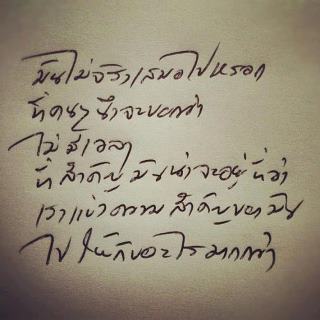 มันไม่จริงเสมอไปหรอก
ที่คนๆ นึงจะบอกว่า
ไม่มีเวลา
ที่สำคัญ มันน่าจะอยู่ที่ว่า
เราแบ่งความสำคัญของมัน
ไปให้กับอะไรมากกว่า